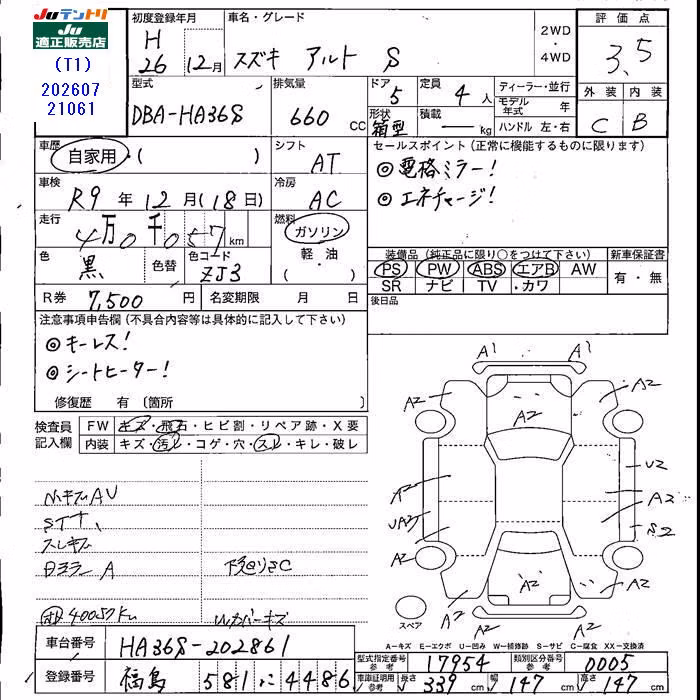 Juテントリ
Ju
適正販売店
(T1)
202607
21061
初度登録年月
H
26 12月
車名・グレード
スズキ アルト S
2WD
・
4WD
評価点
3.5
型式
DBA-HA36S
排気量
660 CC
ドア
5
定員
4 人
形状
箱型
積載
― kg
ディーラー・並行
モデル年式 年
ハンドル 左・右
外装 内装
C B
車歴
自家用・( )
シフト
AT
セールスポイント(正常に機能するものに限ります)
◎電格ミラー!
◎エネチャージ!
車検
R9 年 12 月(18日)
冷房
AC
走行
4万0千057 km
燃料
ガソリン
軽・油
( )
色
黒
色替
色コード
ZJ3
装備品(純正品に限り○をつけて下さい)
新車保証書
PS PW ABS エアB AW
SR ナビ TV ・カワ
有・無
R券 7,500 円
名変期限 月 日
後日品
注意事項申告欄(不具合内容等は具体的に記入して下さい)
◎キーレス!
◎シートヒーター!
修復歴 有(箇所 )
検査員
記入欄
FW キズ・飛石・ヒビ割・リペア跡・X要
内装 キズ・汚レ・コゲ・穴・スレ・キレ・破レ
A1 A1
A2 A2
A2
A2 U2
A2
UA2 S2
A2 A2
A2
A2 A2
小キズAU
スレキズ
A
下廻りさC
40057km
ルカバーキズ
スペア
A-キズ E-エクボ U-凹み W-補修跡 S-サビ C-腐食 XX-交換済
車台番号 HA36S-202861
登録番号 福島 581 に 4486
型式指定番号
参考
17954
類別区分番号
参考
0005
車庫証明用
参考
長さ 339 cm 幅 147 cm 高さ 147 cm